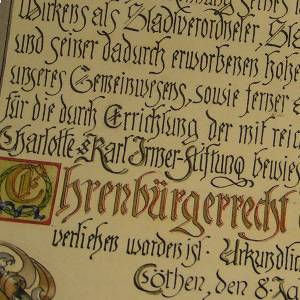 Wirkens als Stadtverordneter, Sta
und seiner dadurch erworbenen hohe
unseres Gemeinwesens, sowie ferner a
für die durch Errichtung der mit reic
Charlotte & Karl Irmer-Stiftung bewies
Ehrenbürgerrecht
verliehen worden ist. Urkundlich
Cöthen, den 8. Ja